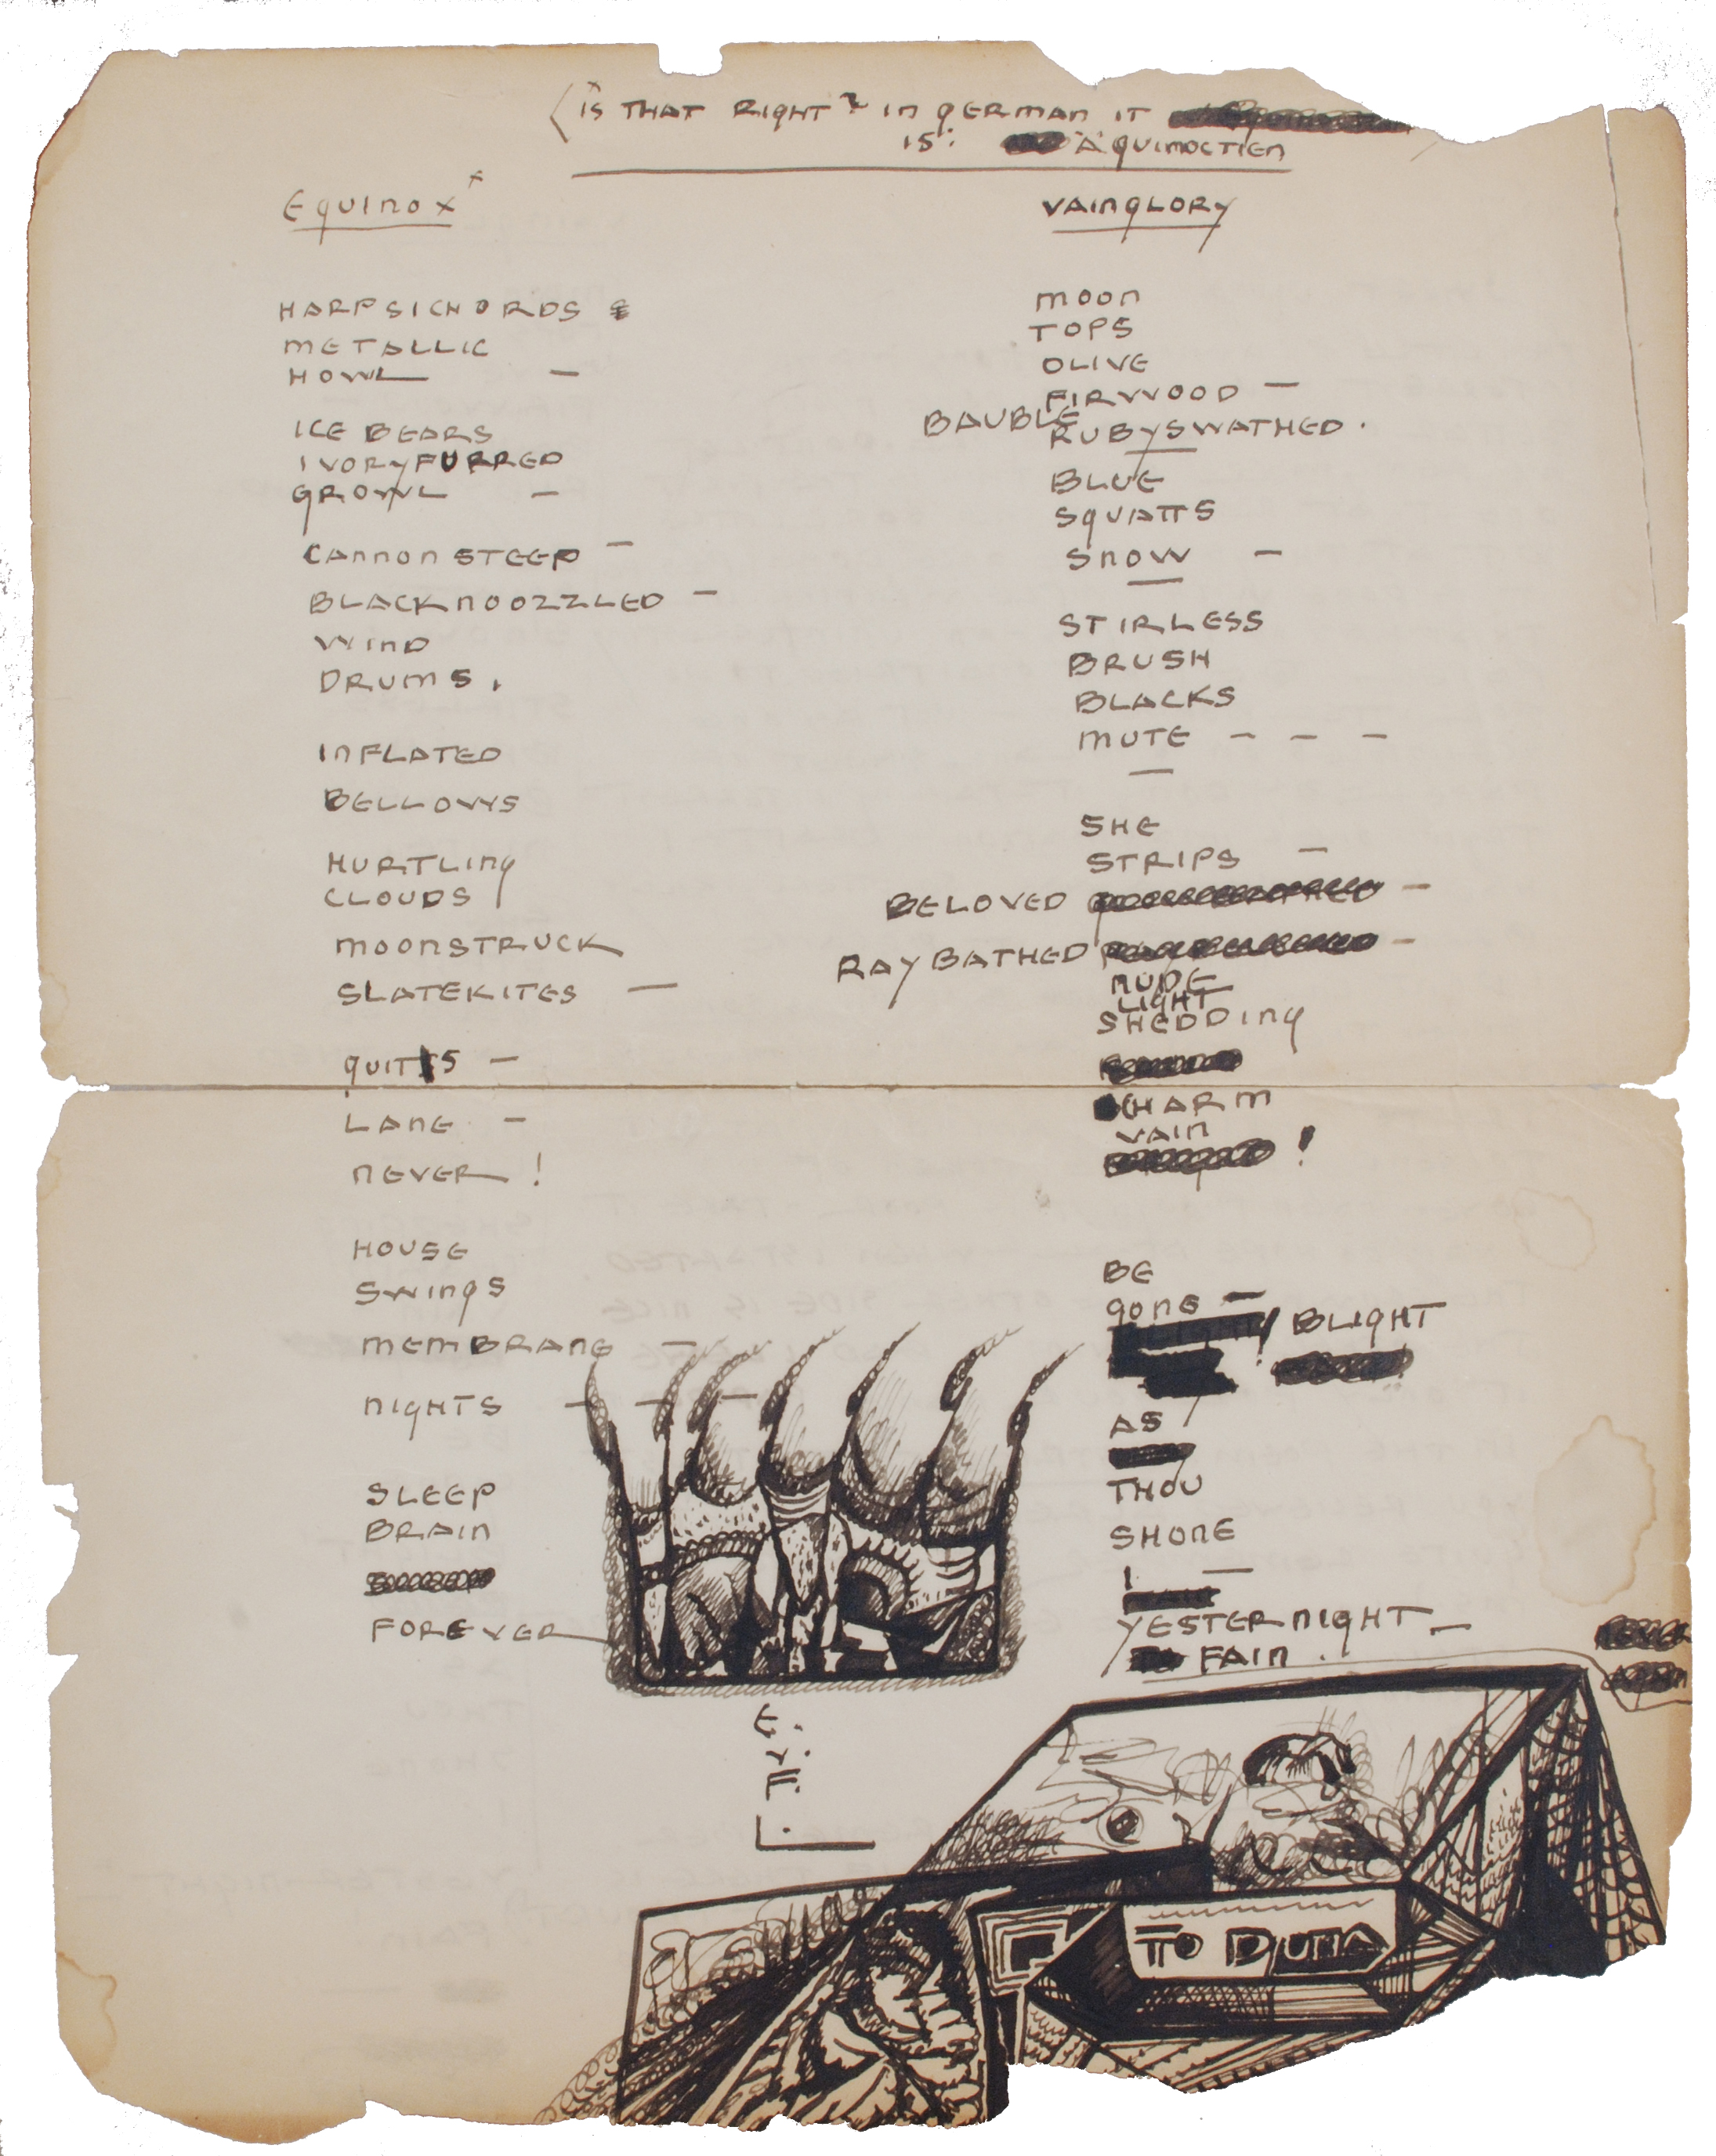 (x IS THAT RIGHT? IN GERMAN IT
IS: ÄQUINOCTIEN
EQUINOX x
HARPSICHORDS
METALLIC
HOWL —
ICE BEARS
IVORYFURRED
GROWL —
CANNON STEEP —
BLACKNOOZZLED —
WIND
DRUMS,
INFLATED
BELLOWS
HURTLING
CLOUDS
MOONSTRUCK
SLATEKITES —
QUITS —
LANE —
NEVER!
HOUSE
SWINGS
MEMBRANE —
NIGHTS — — —
SLEEP
BRAIN
FOREVER
E. V. F. L.
VAINGLORY
MOON
TOPS
OLIVE
FIRWOOD —
BAUBLE
RUBYSWATHED.
BLUE
SQUATTS
SNOW —
STIRLESS
BRUSH
BLACKS
MUTE — — —
SHE
STRIPS —
BELOVED —
RAY BATHED —
NUDE
LIGHT
SHEDDING
CHARM
VAIN !
BE
GONE —
BLIGHT
AS
THOU
SHONE
I —
YESTERNIGHT —
FAIN.
TO DJUNA